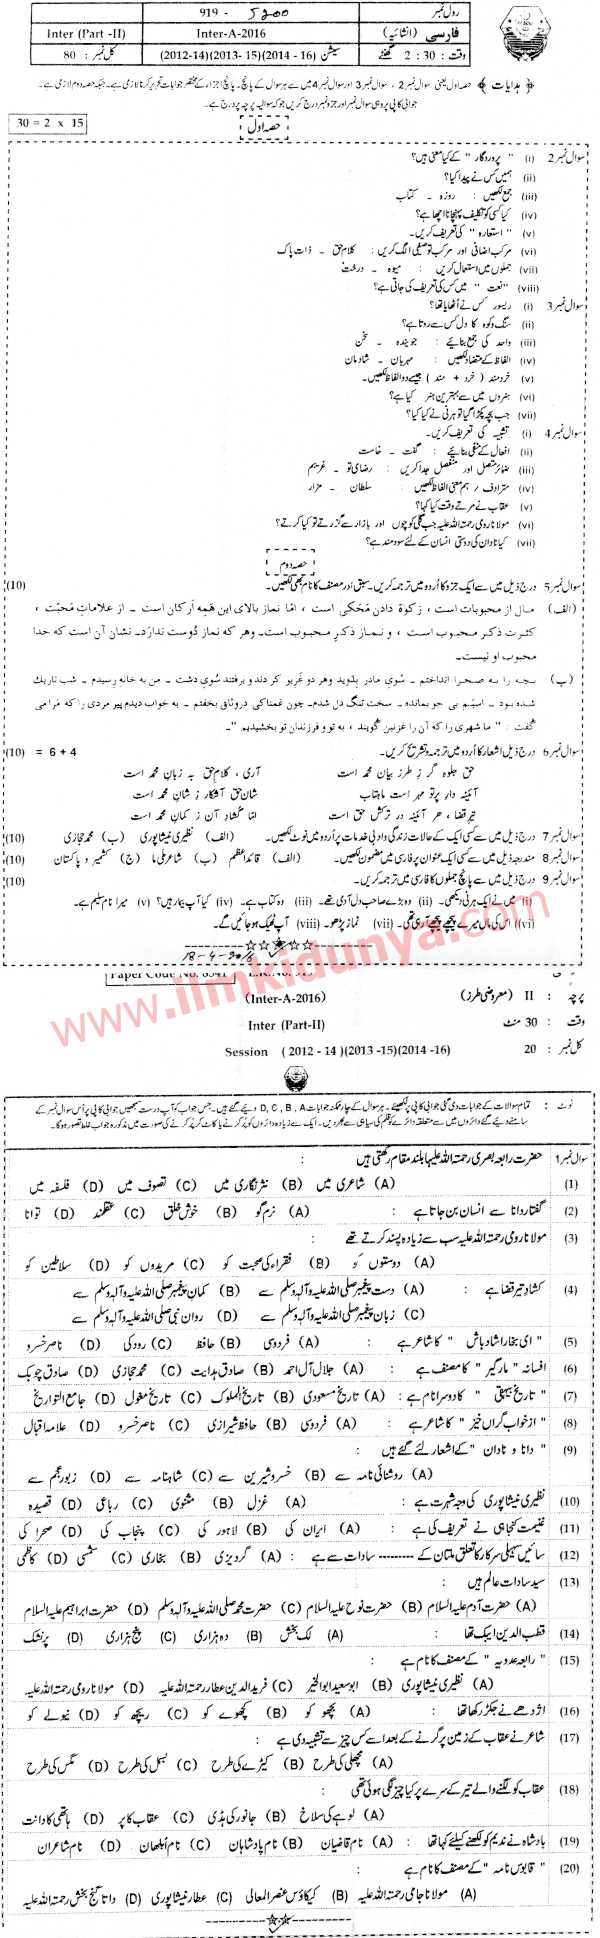 رول نمبر
919 - 5200
فارسی (انشائیہ)
Inter-A-2016
Inter (Part -II)
وقت : 2 : 30 گھنٹے
سیشن (2012-14)(2013- 15)(2014 - 16)
کل نمبر : 80
﴿ ہدایات ﴾ حصہ اول یعنی سوال نمبر 2 ، سوال نمبر 3 اور سوال نمبر 4 میں سے ہر سوال کے پانچ۔ پانچ اجزاء کے مختصر جوابات تحریر کرنا لازمی ہے۔ جبکہ حصہ دوم لازمی ہے۔
جوابی کاپی پر وہی سوال نمبر اور جزو نمبر درج کریں جو کہ سوالیہ پرچہ پر درج ہے۔
حصہ اول
30 = 2 x 15
سوال نمبر 2 (i) " پروردگار " کے کیا معنی ہیں؟
(ii) ہمیں کس نے پیدا کیا؟
(iii) جمع لکھیں : روزہ ۔ کتاب
(iv) کیا کسی کو تکلیف پہنچانا اچھا ہے؟
(v) " استعارہ " کی تعریف کریں۔
(vi) مرکب اضافی اور مرکب توصیفی الگ کریں : کلام حق ۔ ذات پاک
(vii) جملوں میں استعمال کریں : میوہ ۔ درخت
(viii) " نعت " میں کس کی تعریف کی جاتی ہے؟
سوال نمبر 3 (i) ریسور کس نے اٹھایا تھا؟
(ii) سنگ و کوہ کا دل کس سے روتا ہے؟
(iii) واحد کی جمع بنائیے : جویندہ ۔ سخن
(iv) الفاظ کے متضاد لکھیں : مہربان ۔ شادمان
(v) خردمند ( خرد + مند ) جیسے دو الفاظ لکھیں۔
(vi) ہنروں میں سے بہترین ہنر کیا ہے؟
(vii) جب بچہ پکڑا گیا تو ہرنی نے کیا کیا؟
سوال نمبر 4 (i) تشبیہ کی تعریف کریں۔
(ii) افعال کے منفی بنائیے : گفت ۔ خاست
(iii) ضمائر متصل اور منفصل جدا کریں : رضای تو ۔ غریبم
(iv) مترادف / ہم معنی الفاظ لکھیں : سلطان ۔ مزار
(v) عقاب نے مرتے وقت کیا کہا؟
(vi) مولانا رومی رحمتہ اللہ علیہ جب گلی کوچوں اور بازار سے گزرتے تو کیا کرتے؟
(vii) کیا نادان کی دوستی انسان کے لئے سودمند ہے؟
حصہ دوم
سوال نمبر 5 درج ذیل میں سے ایک جزو کا اردو میں ترجمہ کریں۔ سبق اور مصنف کا نام بھی لکھیں۔ (10)
(الف) مال از محبوبات است ، زکوۃ دادن محکی است ، اما نماز بالای این همه ارکان است ۔ از علامات محبّت ،
کثرت ذکر محبوب است ، و نماز ذکرِ محبوب است۔ وهر که نماز دوست ندارد۔ نشان آن است که خدا
محبوب او نیست۔
(ب) بچه را به صحرا انداختم ۔ سوي مادر بدوید وهر دو غریو کردند و برفتند سوي دشت ۔ من به خانه رسیدم ۔ شب تاریک
شده بود ۔ اسبم بی جو بمانده۔ سخت تنگ دل شدم۔ چون غمناکی دروثاق بخفتم ۔ به خواب دیدم پیر مردی را که مرا می
گفت : " ما شهری را که آن را غزنین گویند ، به تو و فرزندان تو بخشیدیم "۔
سوال نمبر 6 درج ذیل اشعار کا اردو میں ترجمہ و تشریح کریں۔ 4 + 6 = (10)
حق جلوہ گر ز طرز بیان محمد است آری ، کلام حق بہ زبان محمد است
آئینہ دار پرتو مہر است ماہتاب شان حق آشکار ز شان محمد است
تیر قضا ، ہر آئینہ در ترکش حق است اما کشاد آن ز کمان محمد است
سوال نمبر 7 درج ذیل میں سے کسی ایک کے حالات زندگی و ادبی خدمات پر اردو میں نوٹ لکھیں۔ (الف) نظیری نیشاپوری (ب) محمد حجازی (10)
سوال نمبر 8 مندرجہ ذیل میں سے کسی ایک عنوان پر فارسی میں مضمون لکھیں۔ (الف) قائداعظم (ب) شاعر ملی ما (ج) کشمیر و پاکستان (10)
سوال نمبر 9 درج ذیل میں سے پانچ جملوں کا فارسی میں ترجمہ کریں۔ (10)
(i) میں نے ایک ہرنی دیکھی۔ (ii) وہ بڑے صاحب دل آدمی تھے۔ (iii) وہ کتاب ہے۔ (iv) کیا آپ بیمار ہیں؟ (v) میرا نام سلیم ہے۔
(vi) اس کی ماں میرے پیچھے پیچھے آ رہی تھی۔ (vii) نماز پڑھو۔ (viii) آپ ٹھیک ہو جائیں گے۔
18-4-2016
www.ilmkidunya.com
Paper Code No. 8341
پرچہ : II (معروضی طرز) (Inter-A-2016)
وقت : 30 منٹ Inter (Part-II)
کل نمبر : 20 Session (2012 - 14)(2013 -15)(2014 -16)
نوٹ : تمام سوالات کے جوابات دی گئی جوابی کاپی پر لکھیئے۔ ہر سوال کے چار ممکنہ جوابات D, C, B, A دیئے گئے ہیں۔ جس جواب کو آپ درست سمجھیں جوابی کاپی پر اُس سوال نمبر کے
سامنے دیئے گئے دائروں میں سے متعلقہ دائرے کو قلم کی سیاہی سے بھر دیں۔ ایک سے زیادہ دائروں کو پُر کرنے یا کاٹ کر پُر کرنے کی صورت میں مذکورہ جواب غلط تصور ہو گا۔
سوال نمبر 1 حضرت رابعہ بصری رحمتہ اللہ علیہا بلند مقام رکھتی ہیں :
(1) (A) شاعری میں (B) نثر نگاری میں (C) تصوف میں (D) فلسفہ میں
(2) گفتار دانا سے انسان بن جاتا ہے : (A) نرم گو (B) خوش خلق (C) عقلمند (D) توانا
(3) مولانا رومی رحمتہ اللہ علیہ سب سے زیادہ پسند کرتے تھے :
(A) دوستوں کو (B) فقراء کی صحبت کو (C) مریدوں کو (D) سلاطین کو
(4) کشاد تیر قضا ہے : (A) دست پیغمبر صلی اللہ علیہ وآلہ وسلم سے (B) کمان پیغمبر صلی اللہ علیہ وآلہ وسلم سے
(C) زبان پیغمبر صلی اللہ علیہ وآلہ وسلم سے (D) روان نبی صلی اللہ علیہ وآلہ وسلم سے
(5) " ای بخارا شاد باش " کا شاعر ہے : (A) فردوسی (B) حافظ (C) رودکی (D) ناصر خسرو
(6) افسانہ " مار گیر " کا مصنف ہے : (A) جلال آل احمد (B) صادق ہدایت (C) محمد حجازی (D) صادق چوبک
(7) " تاریخ بیہقی " کا دوسرا نام ہے : (A) تاریخ مسعودی (B) تاریخ الملوک (C) تاریخ مغول (D) جامع التواریخ
(8) " از خواب گراں خیز " کا شاعر ہے : (A) فردوسی (B) حافظ شیرازی (C) ناصر خسرو (D) علامہ اقبال
(9) " دانا و نادان " کے اشعار لئے گئے ہیں :
(A) روشنائی نامہ سے (B) خسرو شیرین سے (C) شاہنامہ سے (D) زبور عجم سے
(10) نظیری نیشاپوری کی وجہ شہرت ہے : (A) غزل (B) مثنوی (C) رباعی (D) قصیدہ
(11) غنیمت کنجاہی نے تعریف کی ہے : (A) ایران کی (B) لاہور کی (C) پنجاب کی (D) صحرا کی
(12) سائیں سہیلی سرکار کا تعلق ملتان کے --------- سادات سے ہے : (A) گردیزی (B) بخاری (C) شمسی (D) کاظمی
(13) سید سادات عالم ہیں :
(A) حضرت آدم علیہ السلام (B) حضرت نوح علیہ السلام (C) حضرت محمد صلی اللہ علیہ وآلہ وسلم (D) حضرت ابراہیم علیہ السلام
(14) قطب الدین ایبک تھا : (A) لک بخش (B) دہ ہزاری (C) پنج ہزاری (D) پزشک
(15) " رابعہ عدویہ " کے مصنف کا نام ہے :
(A) نظیری نیشاپوری (B) ابو سعید ابو الخیر (C) فرید الدین عطار رحمتہ اللہ علیہ (D) مولانا رومی رحمتہ اللہ علیہ
(16) اژدھے نے جکڑ رکھا تھا : (A) بچھو کو (B) کچھوے کو (C) ریچھ کو (D) نیولے کو
(17) شاعر نے عقاب کے زمین پر گرنے کے بعد اسے کس چیز سے تشبیہ دی ہے :
(A) مچھلی کی طرح (B) کیڑے کی طرح (C) بسمل کی طرح (D) مگس کی طرح
(18) عقاب کو لگنے والے تیر کے سرے پر کیا چیز لگی ہوئی تھی :
(A) لوہے کی سلاخ (B) جانور کی ہڈی (C) عقاب کا پر (D) ہاتھی کا دانت
(19) بادشاہ نے ندیم کو لکھنے کیلئے کہا تھا : (A) نام قاضیان (B) نام پادشاہان (C) نام ابلھان (D) نام شاعران
(20) " قابوس نامہ " کے مصنف کا نام ہے :
(A) مولانا جامی رحمتہ اللہ علیہ (B) کیکاؤس عنصر المعالی (C) عطار نیشاپوری (D) داتا گنج بخش رحمتہ اللہ علیہ